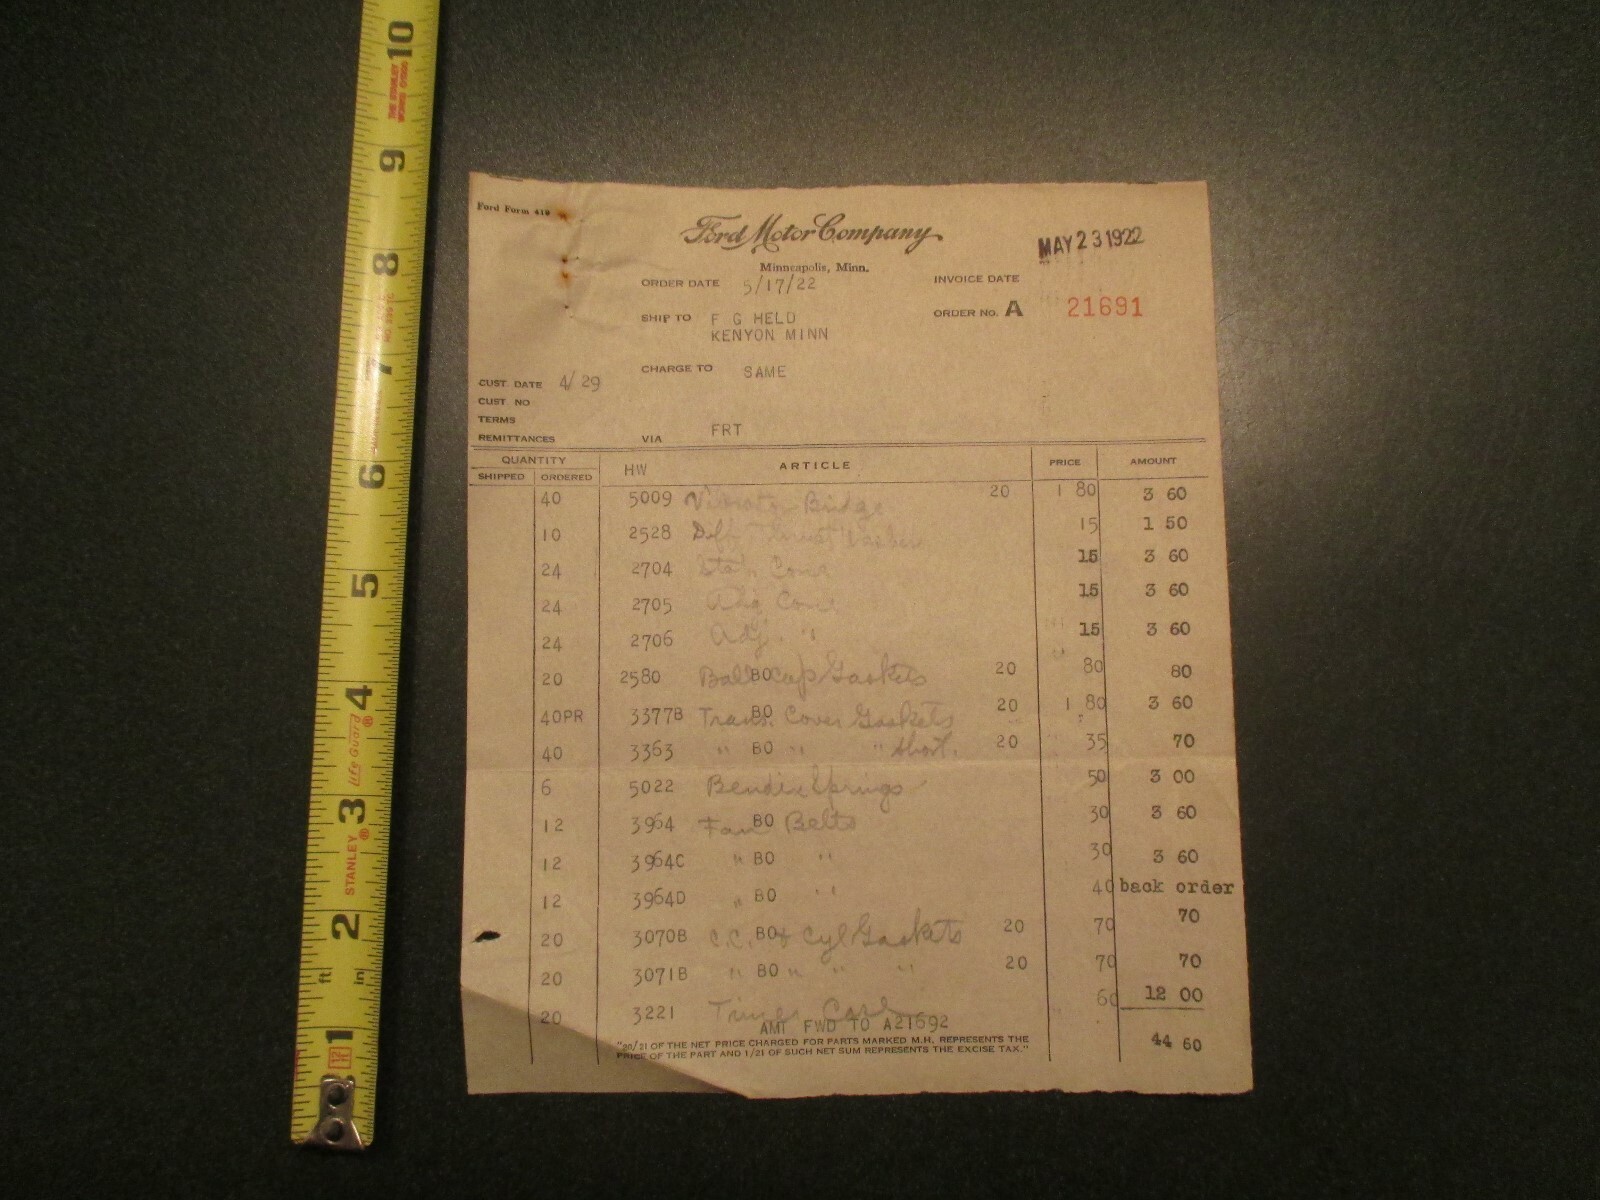 Ford Form 410
Ford Motor Company
MAY 23 1922
Minneapolis, Minn.
ORDER DATE 5/17/22
INVOICE DATE
SHIP TO F G HELD
KENYON MINN
ORDER NO. A 21691
CHARGE TO SAME
CUST. DATE 4/29
CUST NO
TERMS
REMITTANCES
VIA FRT
QUANTITY HW ARTICLE PRICE AMOUNT
SHIPPED ORDERED
40 5009 Vibrator Bridge 20 1 80 3 60
10 2528 Diff. Thrust 15 1 50
24 2704 Cone 15 3 60
24 2705 Cone 15 3 60
24 2706 Adj. " 15 3 60
20 2580 Ball BO Cap Gaskets 20 80 80
40PR 3377B Trans. BO Cover Gaskets 20 1 80 3 60
40 3363 " BO " " Short. 20 35 70
6 5022 Bendix Springs 50 3 00
12 3964 Fan BO Belts 30 3 60
12 3964C " BO " 30 3 60
12 3964D " BO " 40 back order
20 3070B C.C. BO & Cyl Gaskets 20 70 70
20 3071B " BO " " " 20 70 70
20 3221 Timer Case 60 12 00
AMT FWD TO A21692
44 60
"20/21 OF THE NET PRICE CHARGED FOR PARTS MARKED M.H. REPRESENTS THE
PRICE OF THE PART AND 1/21 OF SUCH NET SUM REPRESENTS THE EXCISE TAX."
10
THE STANLEY WORKS
9
8
7
6
5
4
Life Guard®
3
STANLEY®
2
ft in
1